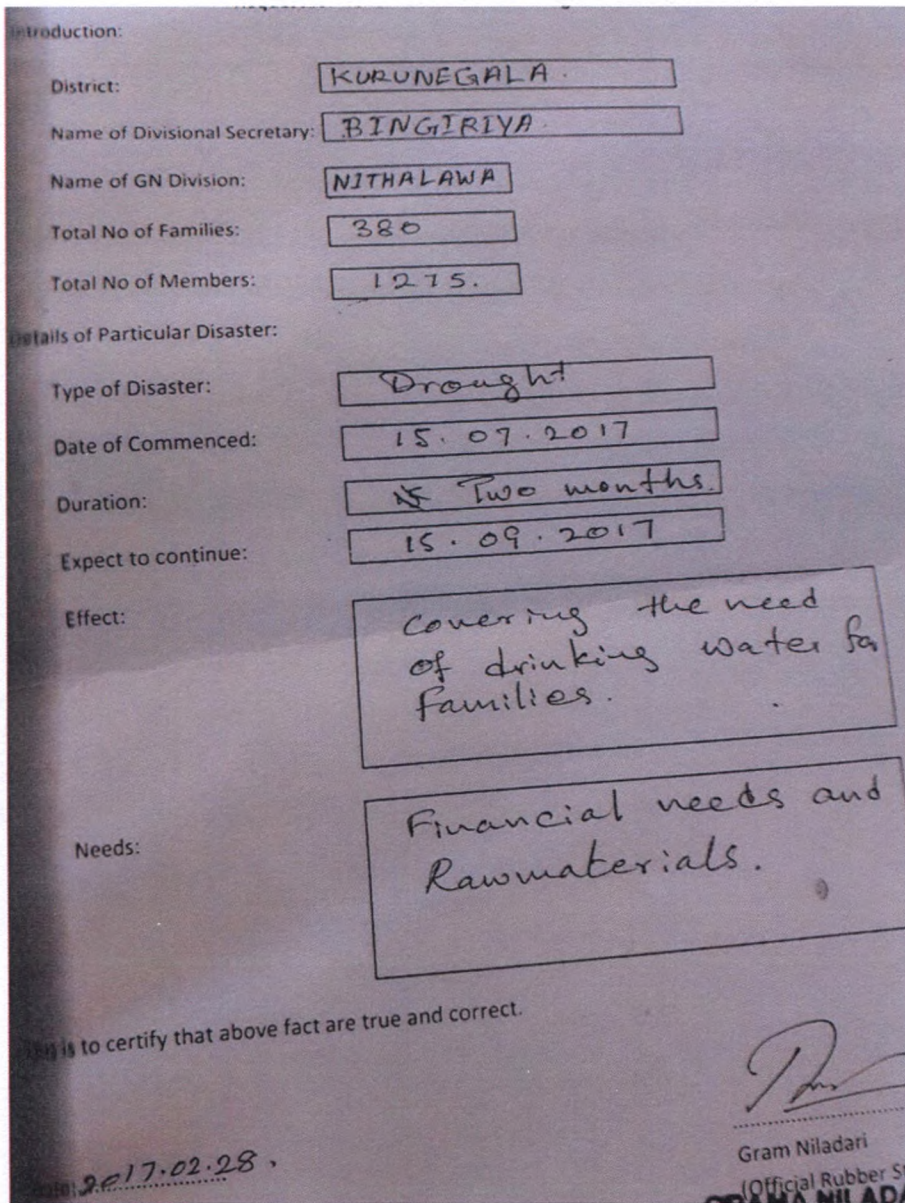 introduction:
District: KURUNEGALA.
Name of Divisional Secretary: BINGIRIYA.
Name of GN Division: NITHALAWA
Total No of Families: 380
Total No of Members: 1275.
Details of Particular Disaster:
Type of Disaster: Drought
Date of Commenced: 15.07.2017
Duration: Two months.
Expect to continue: 15.09.2017
Effect: Covering the need
of drinking water for
Families.
Needs: Financial needs and
Rawmaterials.
is to certify that above fact are true and correct.
2017.02.28.
Gram Niladari
(Official Rubber S